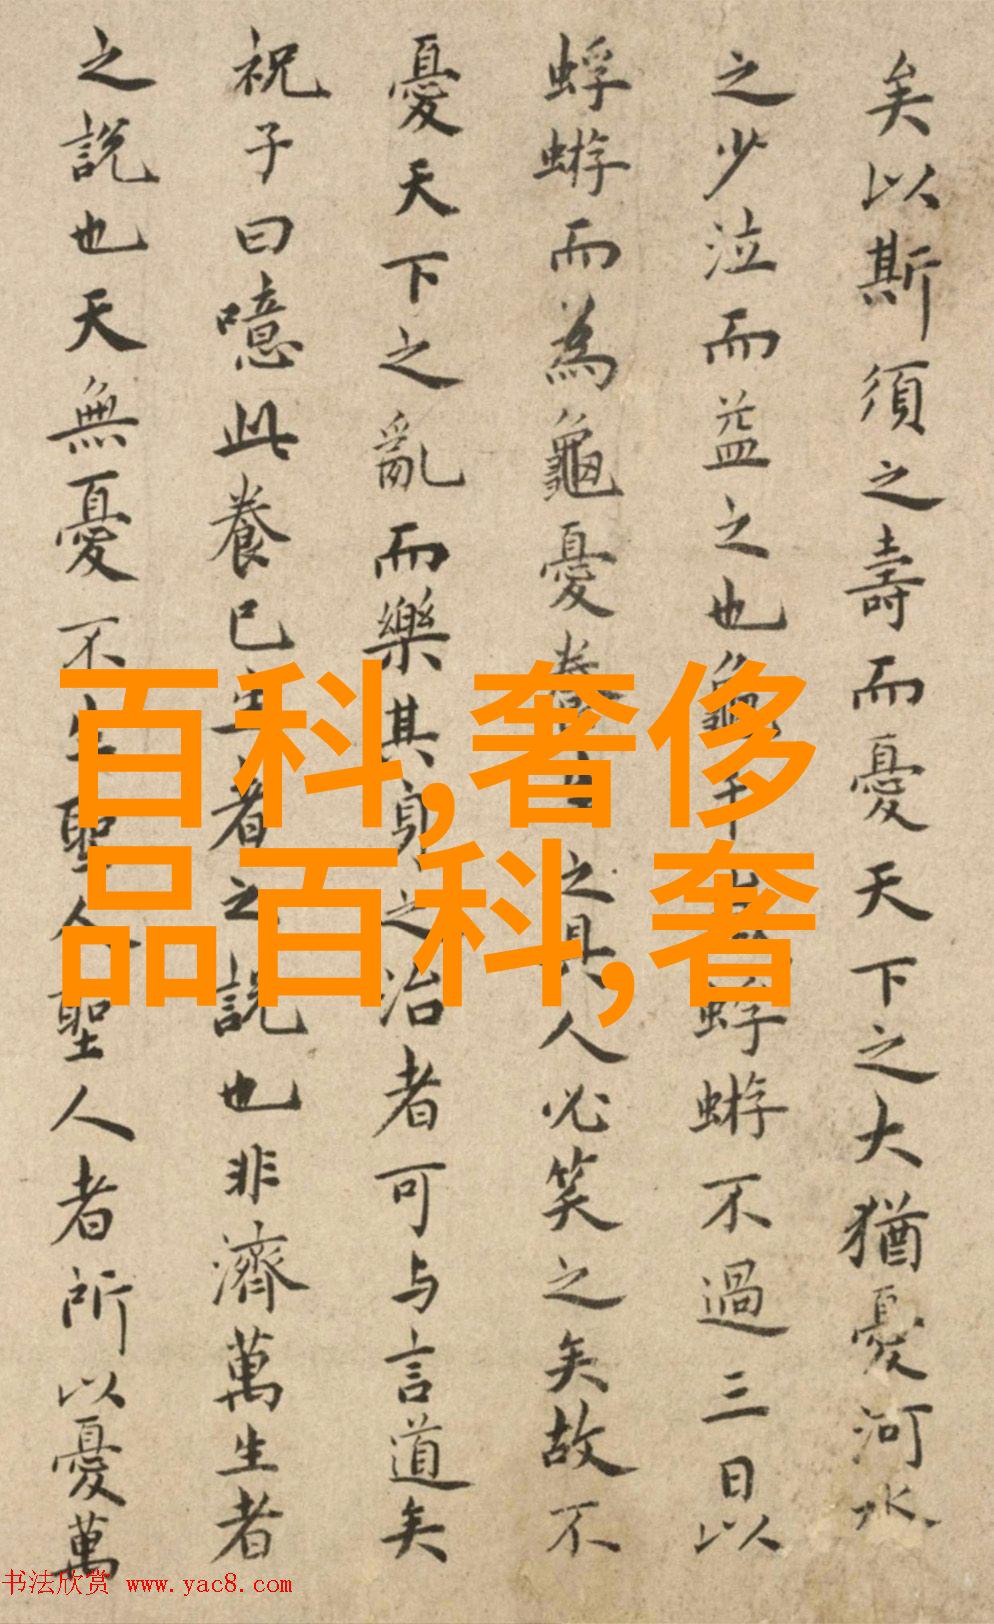 矣以斯須之壽而憂天下之大猶憂河水
之少泣而益之也龜蜉蝣不過三日以
蜉蝣而為龜憂養之具人必笑之矣故不
憂天下之亂而樂其身之治者可与言道矣
祝子曰噫此養已生者之説也非濟萬生者
之説也天無憂不生聖人聖人者所以憂萬
百科,奢侈
品百科,奢
书法欣赏 www.yac8.com